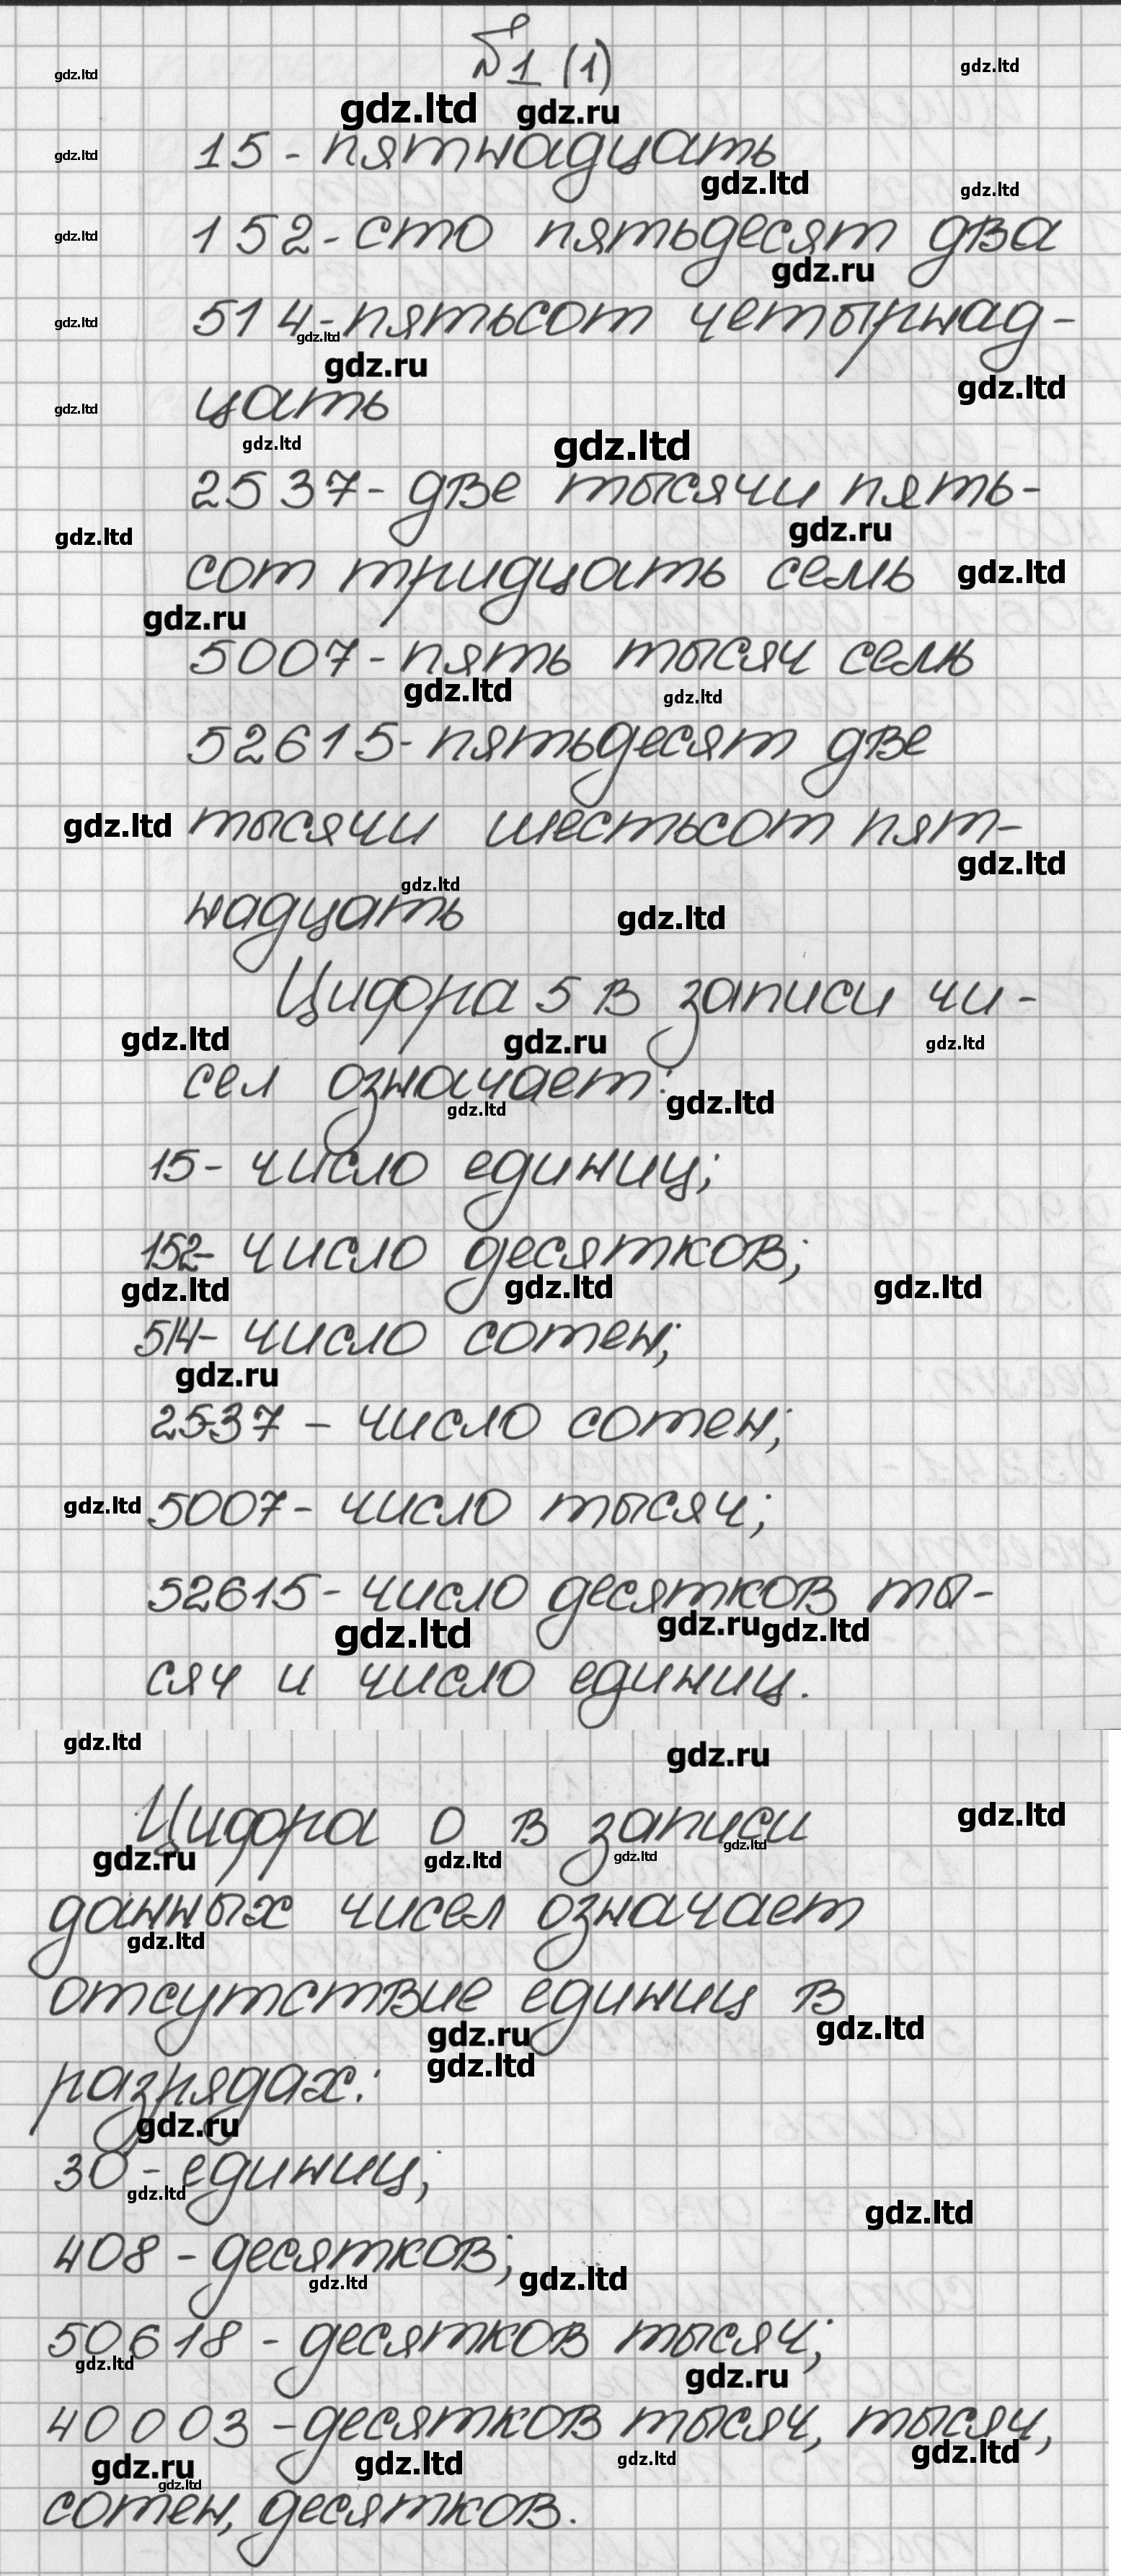 №1 (1)
15 - пятнадцать
152 - сто пятьдесят два
514 - пятьсот четырнад-
цать
2537 - две тысячи пять-
сот тридцать семь
5007 - пять тысяч семь
52615 - пятьдесят две
тысячи шестьсот пят-
надцать
Цифра 5 в записи чи-
сел означает:
15 - число единиц;
152 - число десятков;
514 - число сотен;
2537 - число сотен;
5007 - число тысяч;
52615 - число десятков ты-
сяч и число единиц.
Цифра 0 в записи
данных чисел означает
отсутствие единиц в
разрядах:
30 - единиц;
408 - десятков;
50618 - десятков тысяч;
40003 - десятков тысяч, тысяч,
сотен, десятков.